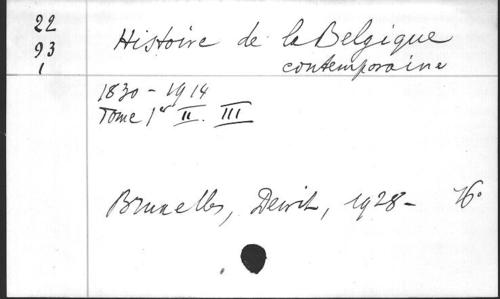 22
93
1
Histoire de la Belgique
contemporaine
1830 - 1914
Tome 1er II. III
Bruxelles, Dewit, 1928 -